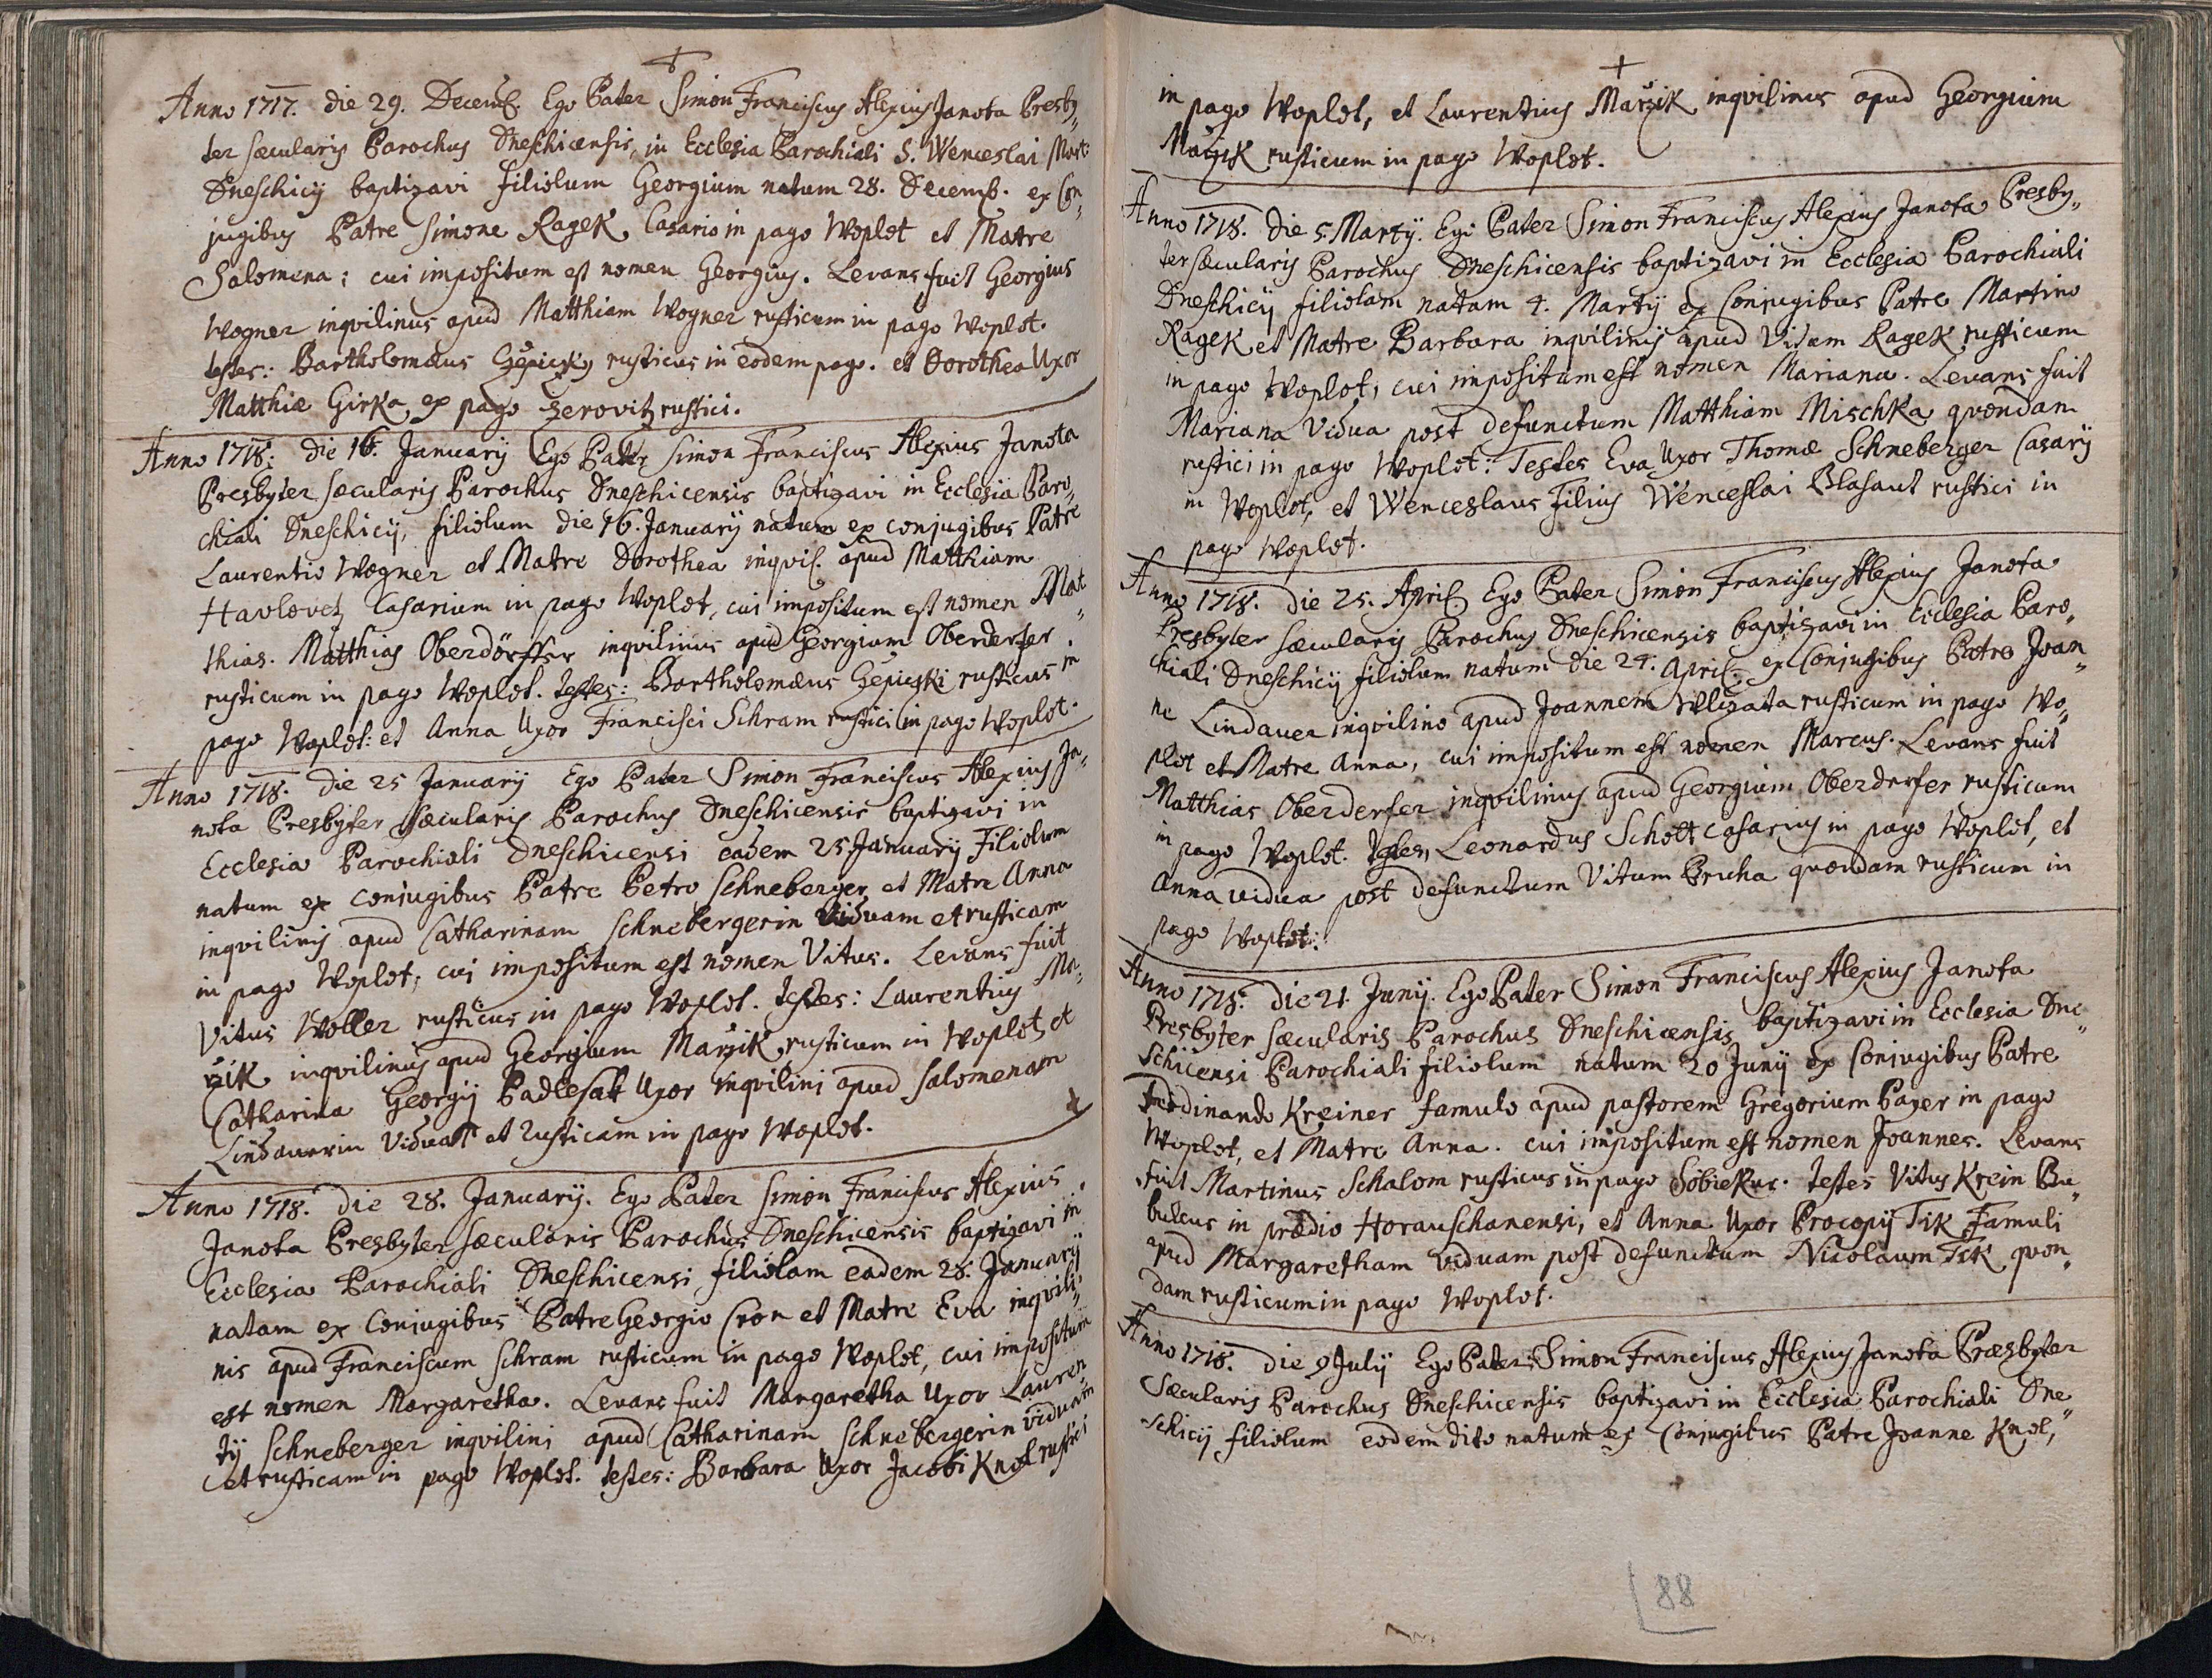 Anno 1717. die 29. Decemb. Ego Pater Simon Franciscus Alexius Janota Presby„
ter sæcularis Parochus Dneschicensis, in Ecclesia Parochiali S. Wenceslai Mart:
Dneschicij baptizavi filiolum Georgium natum 28. Decemb. ex Con„
jugibus Patre Simone Ragek Casario in pago Woplot et Matre
Salomena: cui impositum est nomen Georgius. Levans fuit Georgius
Wogner inqvilinus apud Matthiam Wogner rusticum in pago Woplot.
testes: Bartholomæus rusticus in eodem pago. et Dorothea Uxor
Matthiæ Girka, ex pago Zerovitz rustici.
Anno 1718: die 16. January Ego Pater Simon Franciscus Alexius Janota
Presbyter sæcularis Parochus Dneschicensis baptizavi in Ecclesia Paro„
chiali Dneschicij, filiolum die 16. January natum ex conjugibus Patre
Laurentio Wogner et Matre Dorothea inqvil. apud Matthiam
Havlovetz Casarium in pago Woplot, cui impositum est nomen Mat„
thias. Matthias Oberdörffer inqvilinus apud Georgium Oberderfer
rusticum in pago Woplot. testes: Bartholomæus rusticus in
pago Woplot: et Anna Uxor Francisci Schram rustici in pago Woplot.
Anno 1718. die 25 January Ego Pater Simon Franciscus Alexius Ja„
nota Presbyter sæcularis Parochus Dneschicensis baptizavi in
Ecclesia Parochiali Dneschicensi eadem 25 January Filiolum
natum ex conjugibus Patre Petro Schneberger et Matre Anna
inqvilinis apud Catharinam Schnebergerin Viduam et rusticam
in pago Woplot, cui impositum est nomen Vitus. Levans fuit
Vitus Woller rusticus in pago Woplot. testes: Laurentius Ma„
rzik inqvilinus apud Georgium Marzik rusticum in Woplot, et
Catharina Georgij Padlesak Uxor inqvilini apud Salomenam
Lindauerin Viduam et rusticam in pago Woplot.
Anno 1718. die 28. January. Ego Pater Simon Franciscus Alexius
Janota Presbyter sæcularis Parochus Dneschicensis baptizavi in
Ecclesia Parochiali Dneschicensi filiolam eadem 28. January
natam ex Conjugibus Patre Georgio Cron et Matre Eva inqvili„
nis apud Franciscum Schram rusticum in pago Woplot, cui impositum
est nomen Margaretha. Levans fuit Margaretha Uxor Lauren„
tij Schneberger inqvilini apud Catharinam Schnebergerin viduam
et rusticam in pago Woplot. testes: Barbara Uxor Jacobi Knol rustici
in pago Woplot, et Laurentius Marzik inqvilinus apud Georgium
Marzik rusticum in pago Woplot.
Anno 1718. die 5. Martij. Ego Pater Simon Franciscus Alexius Janota Presby„
ter sæcularis Parochus Dneschicensis baptizavi in Ecclesia Parochiali
Dneschicij filiolam natam 4. Martij ex Conjugibus Patre Martino
Ragek et Matre Barbara inqvilinis apud Vitum Ragek rusticum
in pago Woplot, cui impositum est nomen Mariana. Levans fuit
Mariana Vidua post defunctum Matthiam Mischka qvondam
rustici in pago Woplot: Testes Eva Uxor Thomæ Schneberger Casarij
in Woplot, et Wenceslaus Filius Wenceslai Blasaut rustici in
pago Woplot.
Anno 1718. die 25. April. Ego Pater Simon Franciscus Alexius Janota
Presbyter sæcularis Parochus Dneschicensis baptizavi in Ecclesia Paro„
chiali Dneschicij filiolum natum die 24. April. ex Conjugibus Patre Joan„
ne Lindauer inqvilino apud Joannem rusticum in pago Wo„
plot et Matre Anna, cui impositum est nomen Marcus. Levans fuit
Matthias Oberderfer inqvilinus apud Georgium Oberdrfer rusticum
in pago Woplot. Testes, Leonardus Schott casarius in pago Woplot, et
Anna vidua post defunctum Vitum Brucha qvondam rusticum in
pago Woplot:
Anno 1718: die 21. Junij. Ego Pater Simon Franciscus Alexius Janota
Presbyter sæcularis Parochus Dneschicensis baptizavi in Ecclesia Dne„
schicensi Parochiali filiolum natum 20 Junij ex Conjugibus Patre
Ferdinando Kreiner famulo apud pastorem Gregorium Payer in pago
Woplot, et Matre Anna. cui impositum est nomen Joannes. Levans
fuit Martinus Schalom rusticus in pago Sobiekur. testes Vitus Krein Bu„
bulcus in prædio Horauschanensi, et Anna Uxor Procopij Tik Famuli
apud Margaretham viduam post defunctum Nicolaum Tik qvon„
dam rusticum in pago Woplot.
Anno 1718. die 9 July Ego Pater Simon Franciscus Alexius Janota Præsbyter
Sæcularis Parochus Dneschicensis baptizavi in Ecclesia Parochiali Dne„
schicij filiolum eodem dito natum ex Conjugibus Patre Joanne Knol,
88